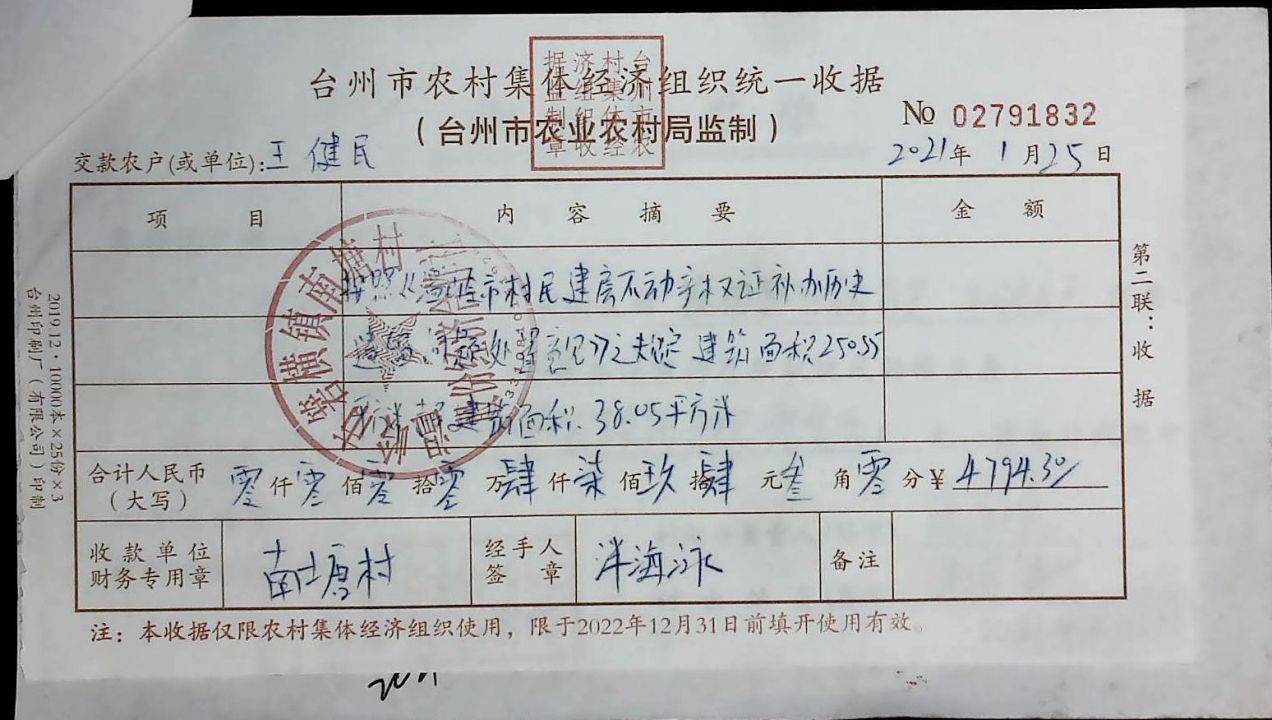 台州市农村集体经济组织统一收据
(台州市农业农村局监制)
台州市农
村集体经
济组织收
据监制章
No 02791832
交款农户(或单位):王健民
2021年1月25日
项目 内容摘要 金额
按照《温岭市村民建房不动产权证补办历史
遗留问题处置意见》之规定 建筑面积250.55
平方米 超建筑面积38.05平方米
合计人民币(大写) 零仟零佰零拾零万肆仟柒佰玖拾肆元叁角零分¥4794.30
收款单位财务专用章 南塘村 经手人签章 海泳 备注
注:本收据仅限农村集体经济组织使用,限于2022年12月31日前填开使用有效。
第二联:收据
2019.12·10000本×25份×3
台州印刷厂(有限公司)印制
横镇南塘村